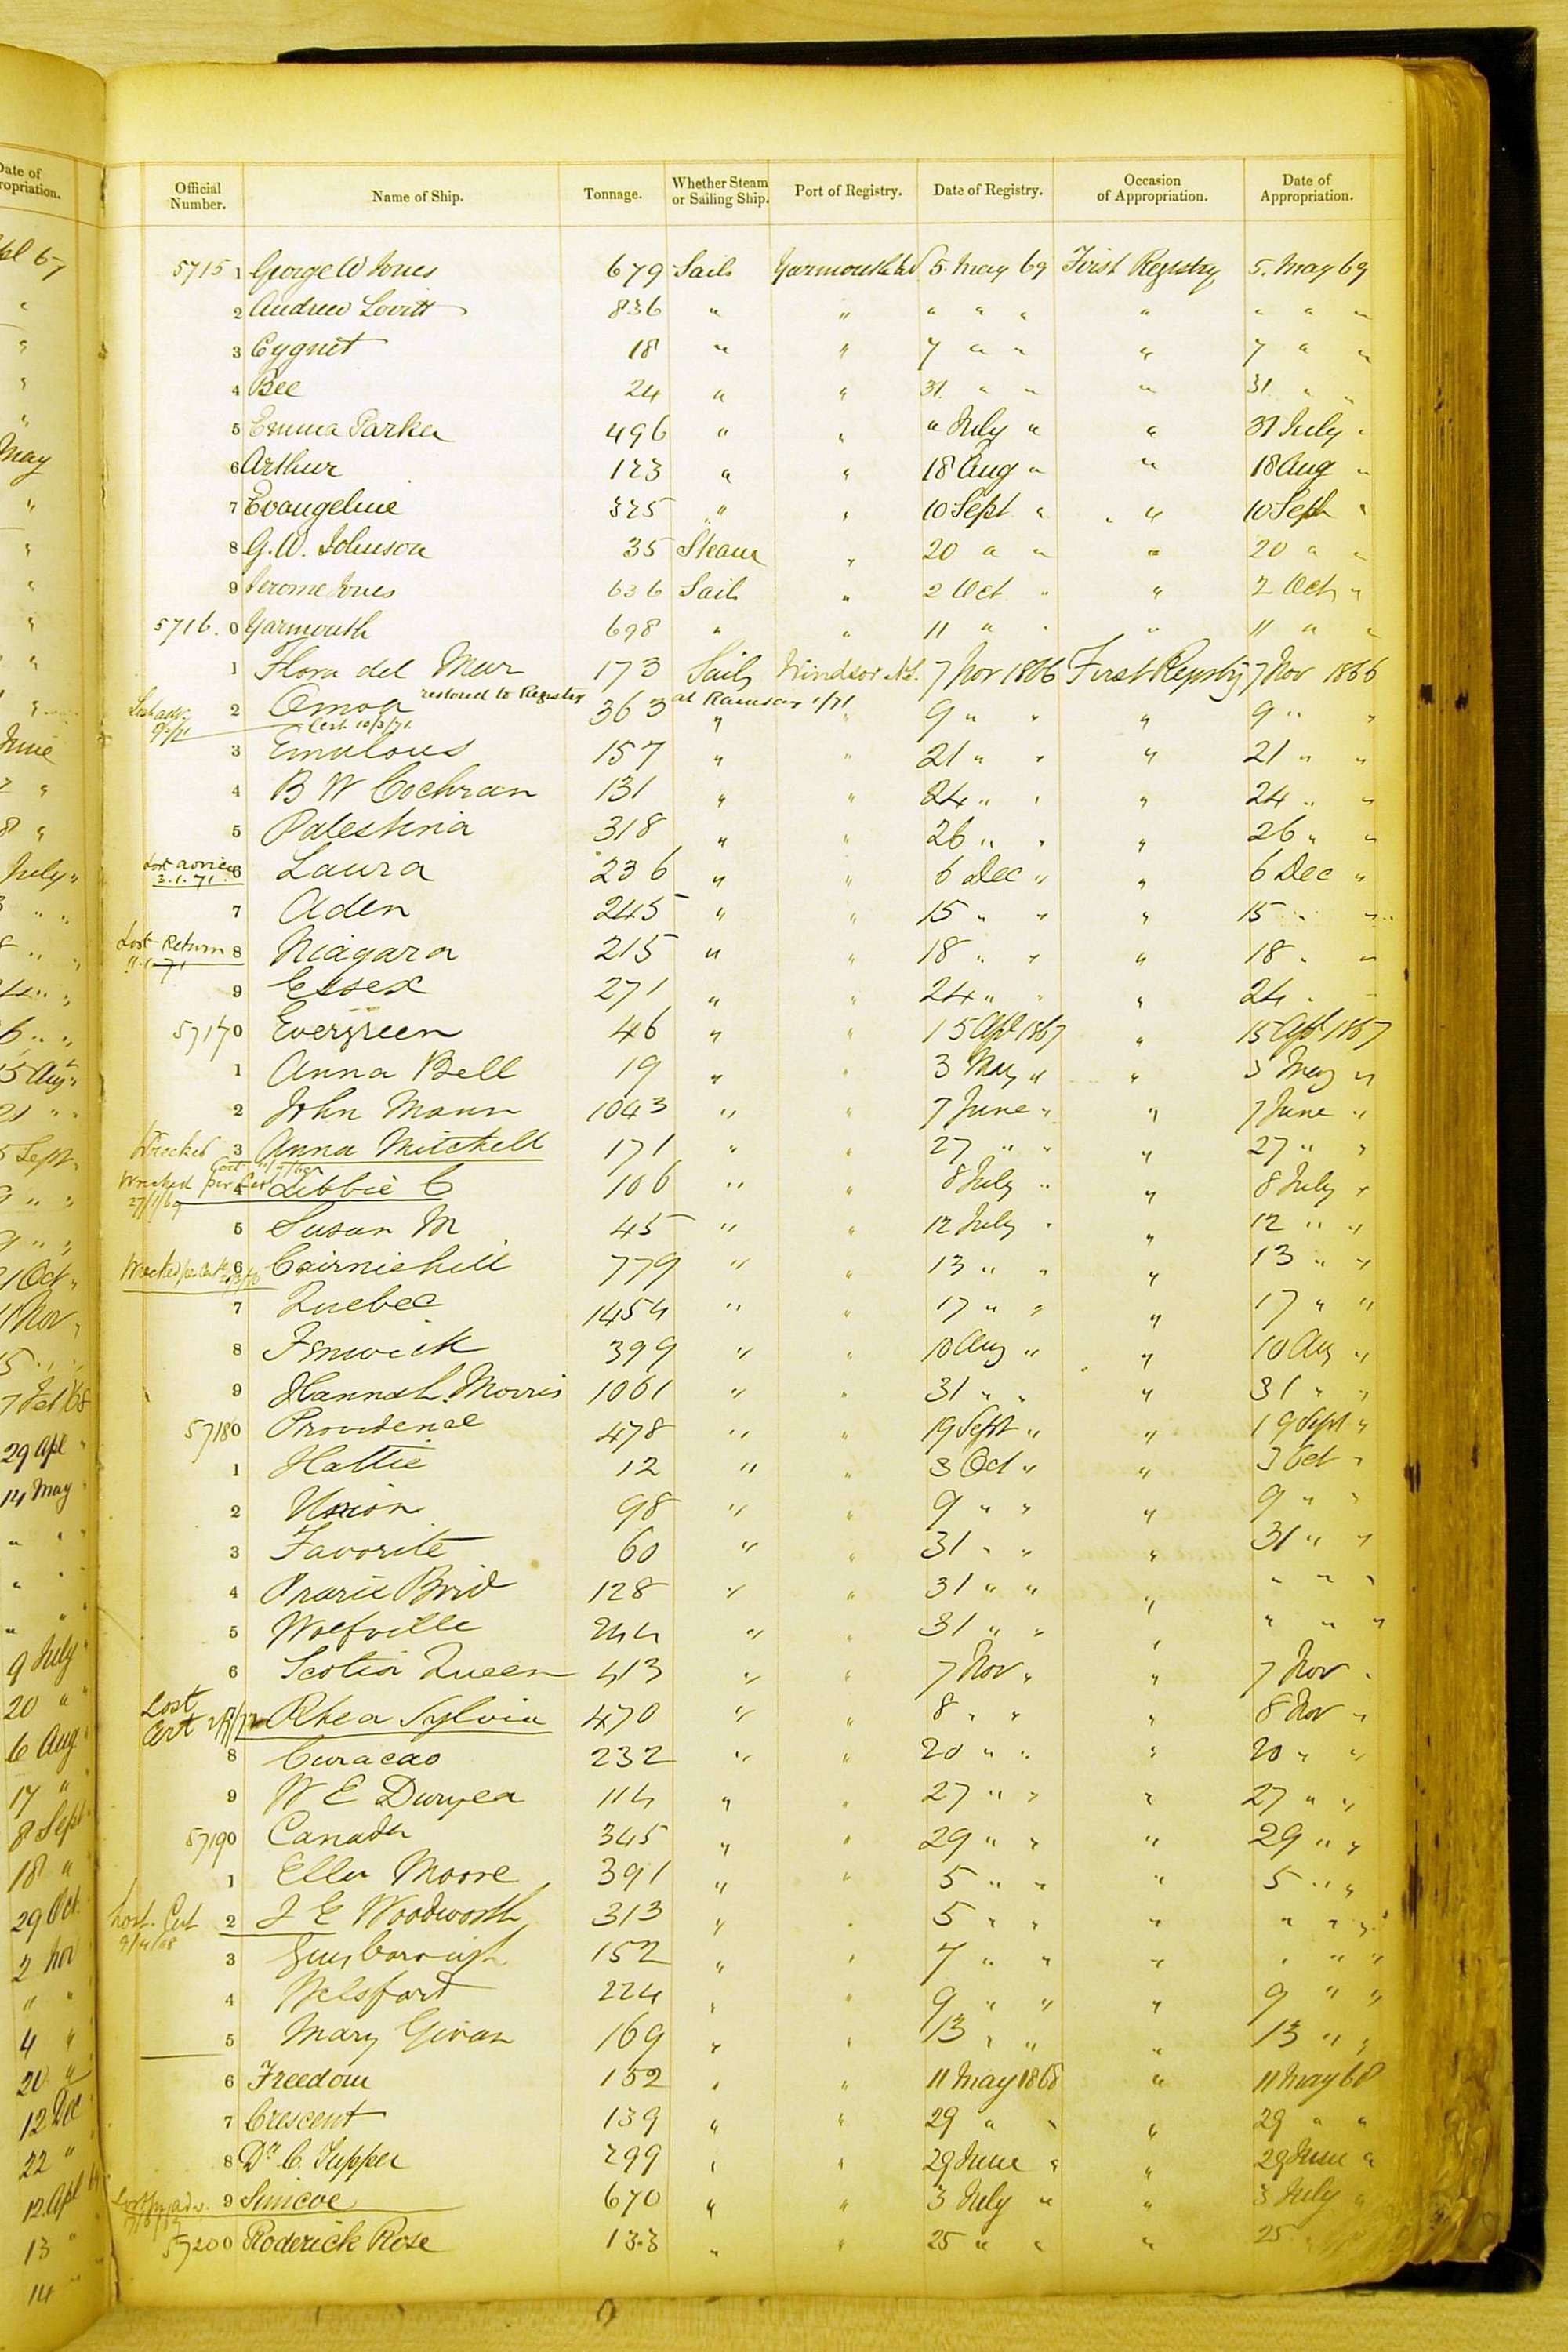 Date of
Appropriation.
Official Number. Name of Ship. Tonnage. Whether Steam or Sailing Ship. Port of Registry. Date of Registry. Occasion of Appropriation. Date of Appropriation.
57151 George W Jones 679 Sails Yarmouth 5 May 69 First Registry 5. May 69
2 Andrew Lovitt 836 " " " " " " " " "
3 Cygnet 18 " " 7 " " " 7 " "
4 Bee 24 " " 31 " " " 31 " "
5 Emma Parker 496 " " " July " " 31 July "
6 Arthur 123 " " 18 Aug " " 18 Aug "
7 Evangeline 325 " " 10 Sept " " 10 Sept "
8 G. W. Johnson 35 Steam " 20 " " " 20 " "
9 Jerome Jones 636 Sails " 2 Oct " " 2 Oct "
5716.0 Yarmouth 698 " " 11 " " " 11 " "
1 Flora del Mar 173 Sails Windsor N.S. 7 Nov 1866 First Registry 7 Nov 1866
restored to Register at Ramsay 1/71
2 Omoa 363 " " 9 " " " 9 " "
Cert 10/3/71
3 Emulous 157 " " 21 " " " 21 " "
4 B W Cochran 131 " " 24 " " " 24 " "
5 Palestina 318 " " 26 " " " 26 " "
Lost advice 3.1.71 6 Laura 236 " " 6 Dec " " 6 Dec "
7 Aden 245 " " 15 " " " 15 " "
Lost Return 8 Niagara 215 " " 18 " " " 18 " "
9 Essex 271 " " 24 " " " 24 " "
57170 Evergreen 46 " " 15 Apl 1867 " 15 Apl 1867
1 Anna Bell 19 " " 3 May " " 3 May "
2 John Mann 1043 " " 7 June " " 7 June "
Wrecked 3 Anna Mitchell 171 " " 27 " " " 27 " "
Wrecked per Cert 27/1/69 4 Libbie C 106 " " 8 July " " 8 July "
5 Susan M 45 " " 12 July " " 12 " "
Wrecked per Cert 6 Cairniehill 779 " " 13 " " " 13 " "
7 Quebec 1454 " " 17 " " " 17 " "
8 Fenwick 399 " " 10 Aug " " 10 Aug "
9 Hannah Morris 1061 " " 31 " " " 31 " "
57180 Providence 478 " " 19 Sept " " 19 Sept "
1 Hattie 12 " " 3 Oct " " 3 Oct "
2 Union 98 " " 9 " " " 9 " "
3 Favorite 60 " " 31 " " " 31 " "
4 Prarie Brid 128 " " 31 " " " " " "
5 Wolfville 244 " " 31 " " " " " "
6 Scotia Queen 413 " " 7 Nov " " 7 Nov "
Lost Cert 7 Rhea Sylvia 470 " " 8 " " " 8 Nov "
8 Curacao 232 " " 20 " " " 20 " "
9 W E Duryea 114 " " 27 " " " 27 " "
57190 Canada 345 " " 29 " " " 29 " "
1 Ella Moore 391 " " 5 " " " 5 " "
Lost Cert 2 J E Woodworth 313 " " 5 " " " " " "
3 Guysborough 152 " " 7 " " " " " "
4 Welsford 224 " " 9 " " " 9 " "
5 Mary Givan 169 " " 13 " " " 13 " "
6 Freedom 152 " " 11 May 1868 " 11 May 68
7 Crescent 139 " " 29 " " " 29 " "
8 Dr. C. Tupper 299 " " 29 June " " 29 June "
9 Simcoe 670 " " 3 July " " 3 July "
57200 Roderick Rose 133 " " 25 " " " 25 "